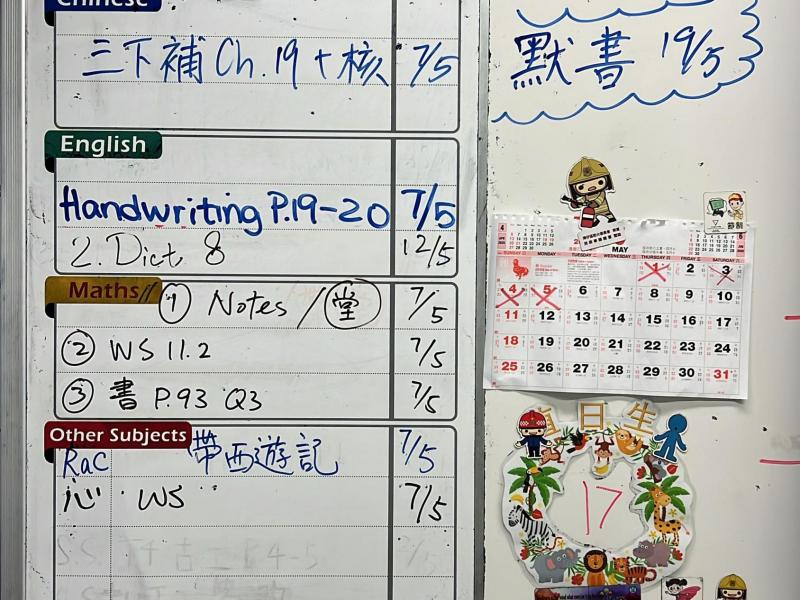 Chinese
三下補 Ch.19 + 核 7/5
默書 19/5
English
Handwriting P.19-20 7/5
2. Dict. 8 12/5
Maths // ① Notes / 堂 7/5
② WS 11.2 7/5
③ 書 P.93 Q3 7/5
Other Subjects
RaC 帶西遊記 7/5
心 WS 7/5
節制
4 MAY 6
SUNDAY MONDAY TUESDAY WEDNESDAY THURSDAY FRIDAY SATURDAY
1 2 3
4 5 6 7 8 9 10
11 12 13 14 15 16 17
18 19 20 21 22 23 24
25 26 27 28 29 30 31
值日生
17